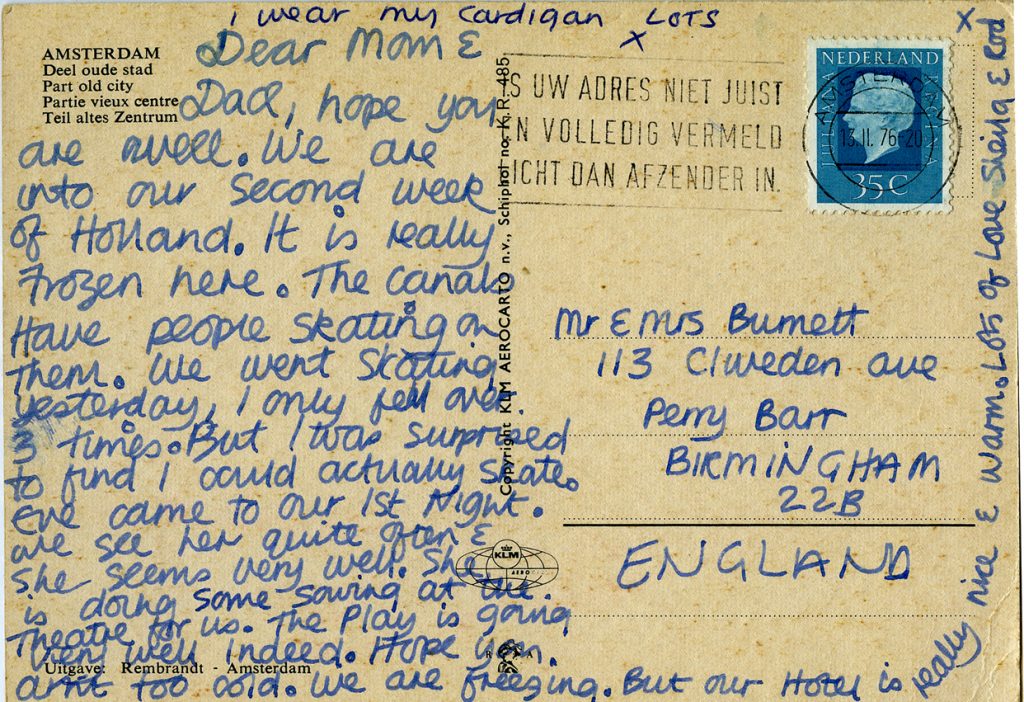 i wear my cardigan LOTS
X
X
AMSTERDAM
Deel oude stad
Part old city
Partie vieux centre
Teil altes Zentrum
Dear Mom &
Dad, hope you
are well. We are
into our second week
of Holland. It is really
Frozen here. The canals
Have people skating on
Them. We went Skating
yesterday, I only fell over
3 times. But I was surprised
to find I could actually skate.
Eve came to our 1st Night.
we see her quite often &
she seems very well. She
is doing some sowing at the
Theatre for us. The Play is going
very well indeed. Hope you
arnt too cold. We are freezing. But our Hotel is
really nice & warm. Lots of Love Sheina & Rod
Uitgave: Rembrandt - Amsterdam
Copyright KLM AEROCARTO n.v., Schiphol no. K.R. 485
KLM
AERO
IS UW ADRES NIET JUIST
EN VOLLEDIG VERMELD
LICHT DAN AFZENDER IN.
NEDERLAND
JULIANA REGINA
35 C
AMSTERDAM
13.II.76-20
Mr & Mrs Burnett
113 Cliveden ave
Perry Barr
BIRMINGHAM
22B
ENGLAND